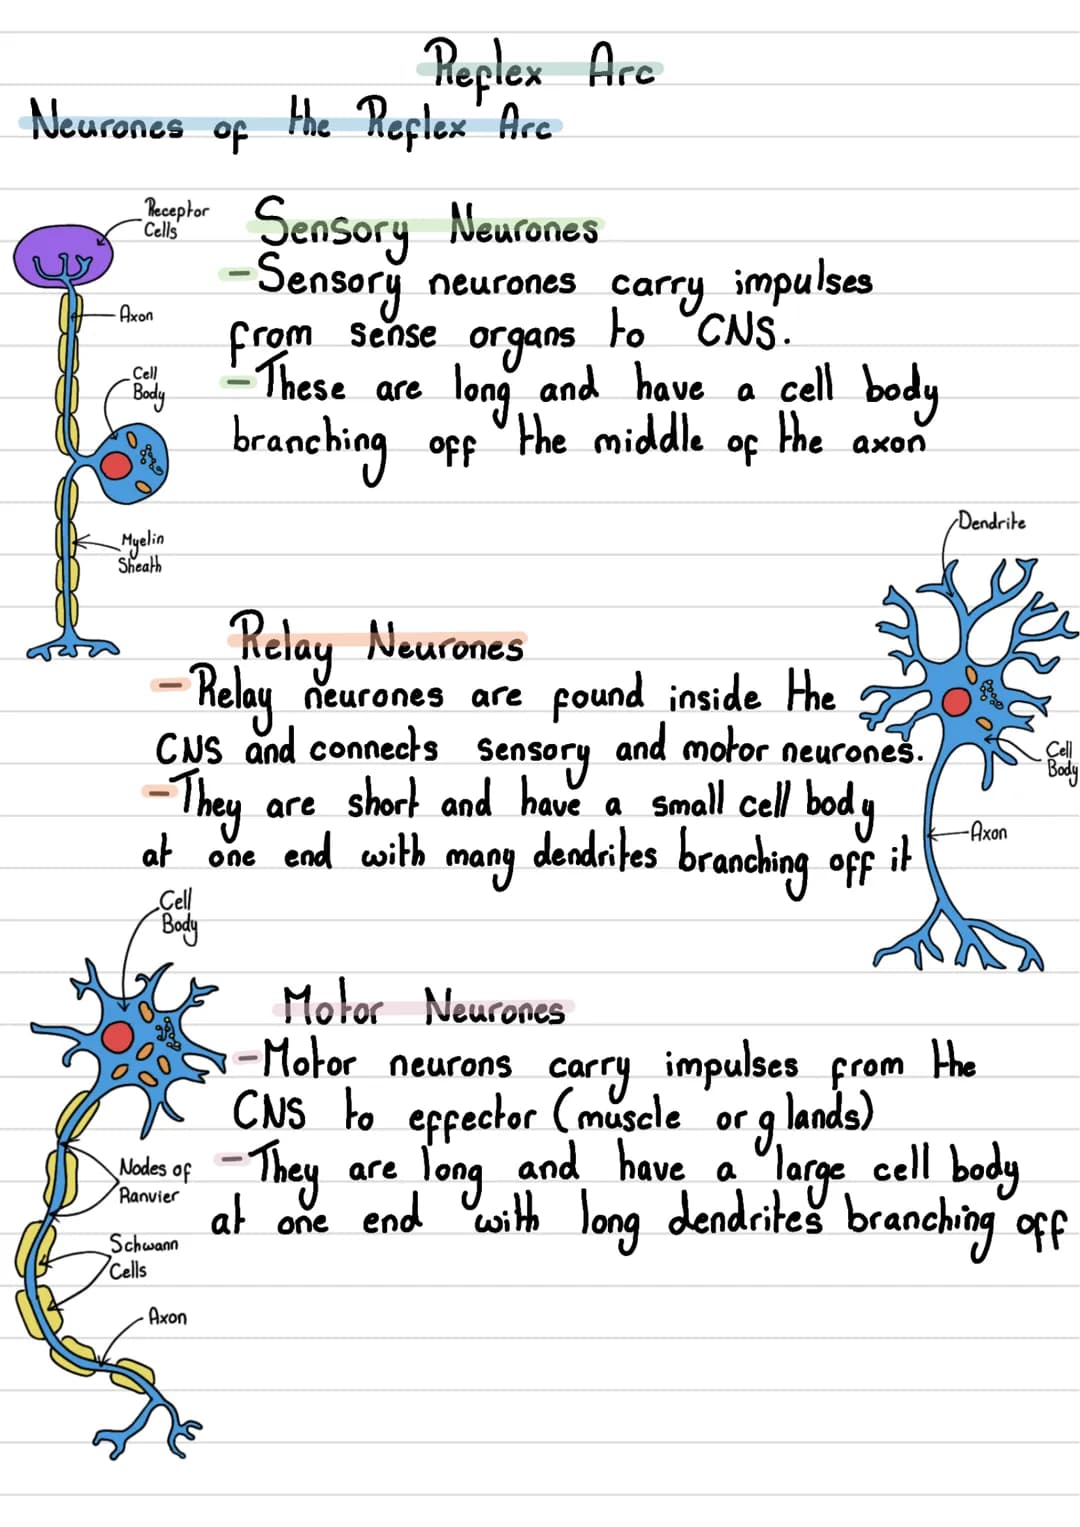 Reflex Arc
Neurones of the Reflex Arc
Receptor
Cells
Axon
Cell
Body
Myelin
Sheath
Sensory Neurones
- Sensory neurones carry impulses
from sense organs to CNS.
- These are long and have a cell body
branching off the middle of the axon
Dendrite
Cell
Body
Axon
Relay Neurones
- Relay neurones are found inside the
CNS and connects sensory and motor neurones.
- They are short and have a small cell body
at one end with many dendrites branching off it
Cell
Body
Nodes of
Ranvier
Schwann
Cells
Axon
Motor Neurones
- Motor neurons carry impulses from the
CNS to effector (muscle or glands)
- They are long and have a large cell body
at one end with long dendrites branching off